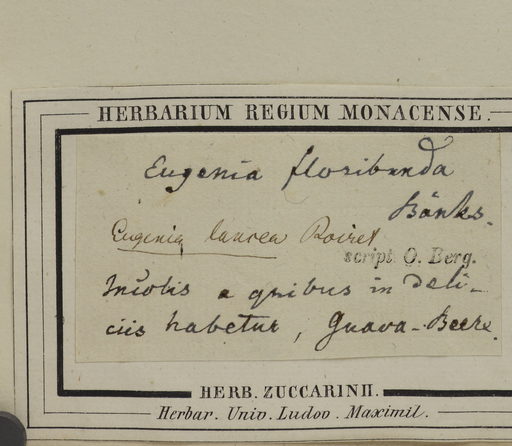 HERBARIUM REGIUM MONACENSE.
Eugenia floribunda
Bänks.
Eugenia laurea Poiret
script. O. Berg.
Incolis a quibus in deli-
ciis habetur, Guava-Beere.
HERB. ZUCCARINII.
Herbar. Univ. Ludov. Maximil.